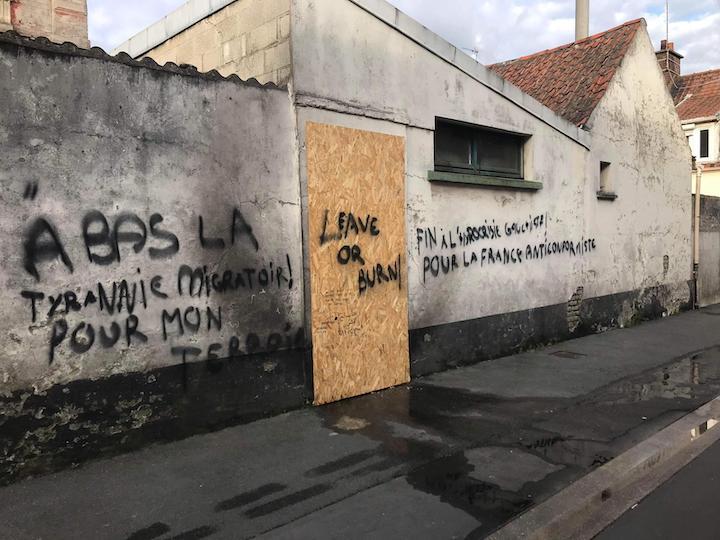 "À BAS LA
TYRANNIE MIGRATOIR!
POUR MON
TERROIR
LEAVE
OR
BURN!
FIN À L'HYPOCRISIE GAUCHISTE!
POUR LA FRANCE ANTICONFORMISTE